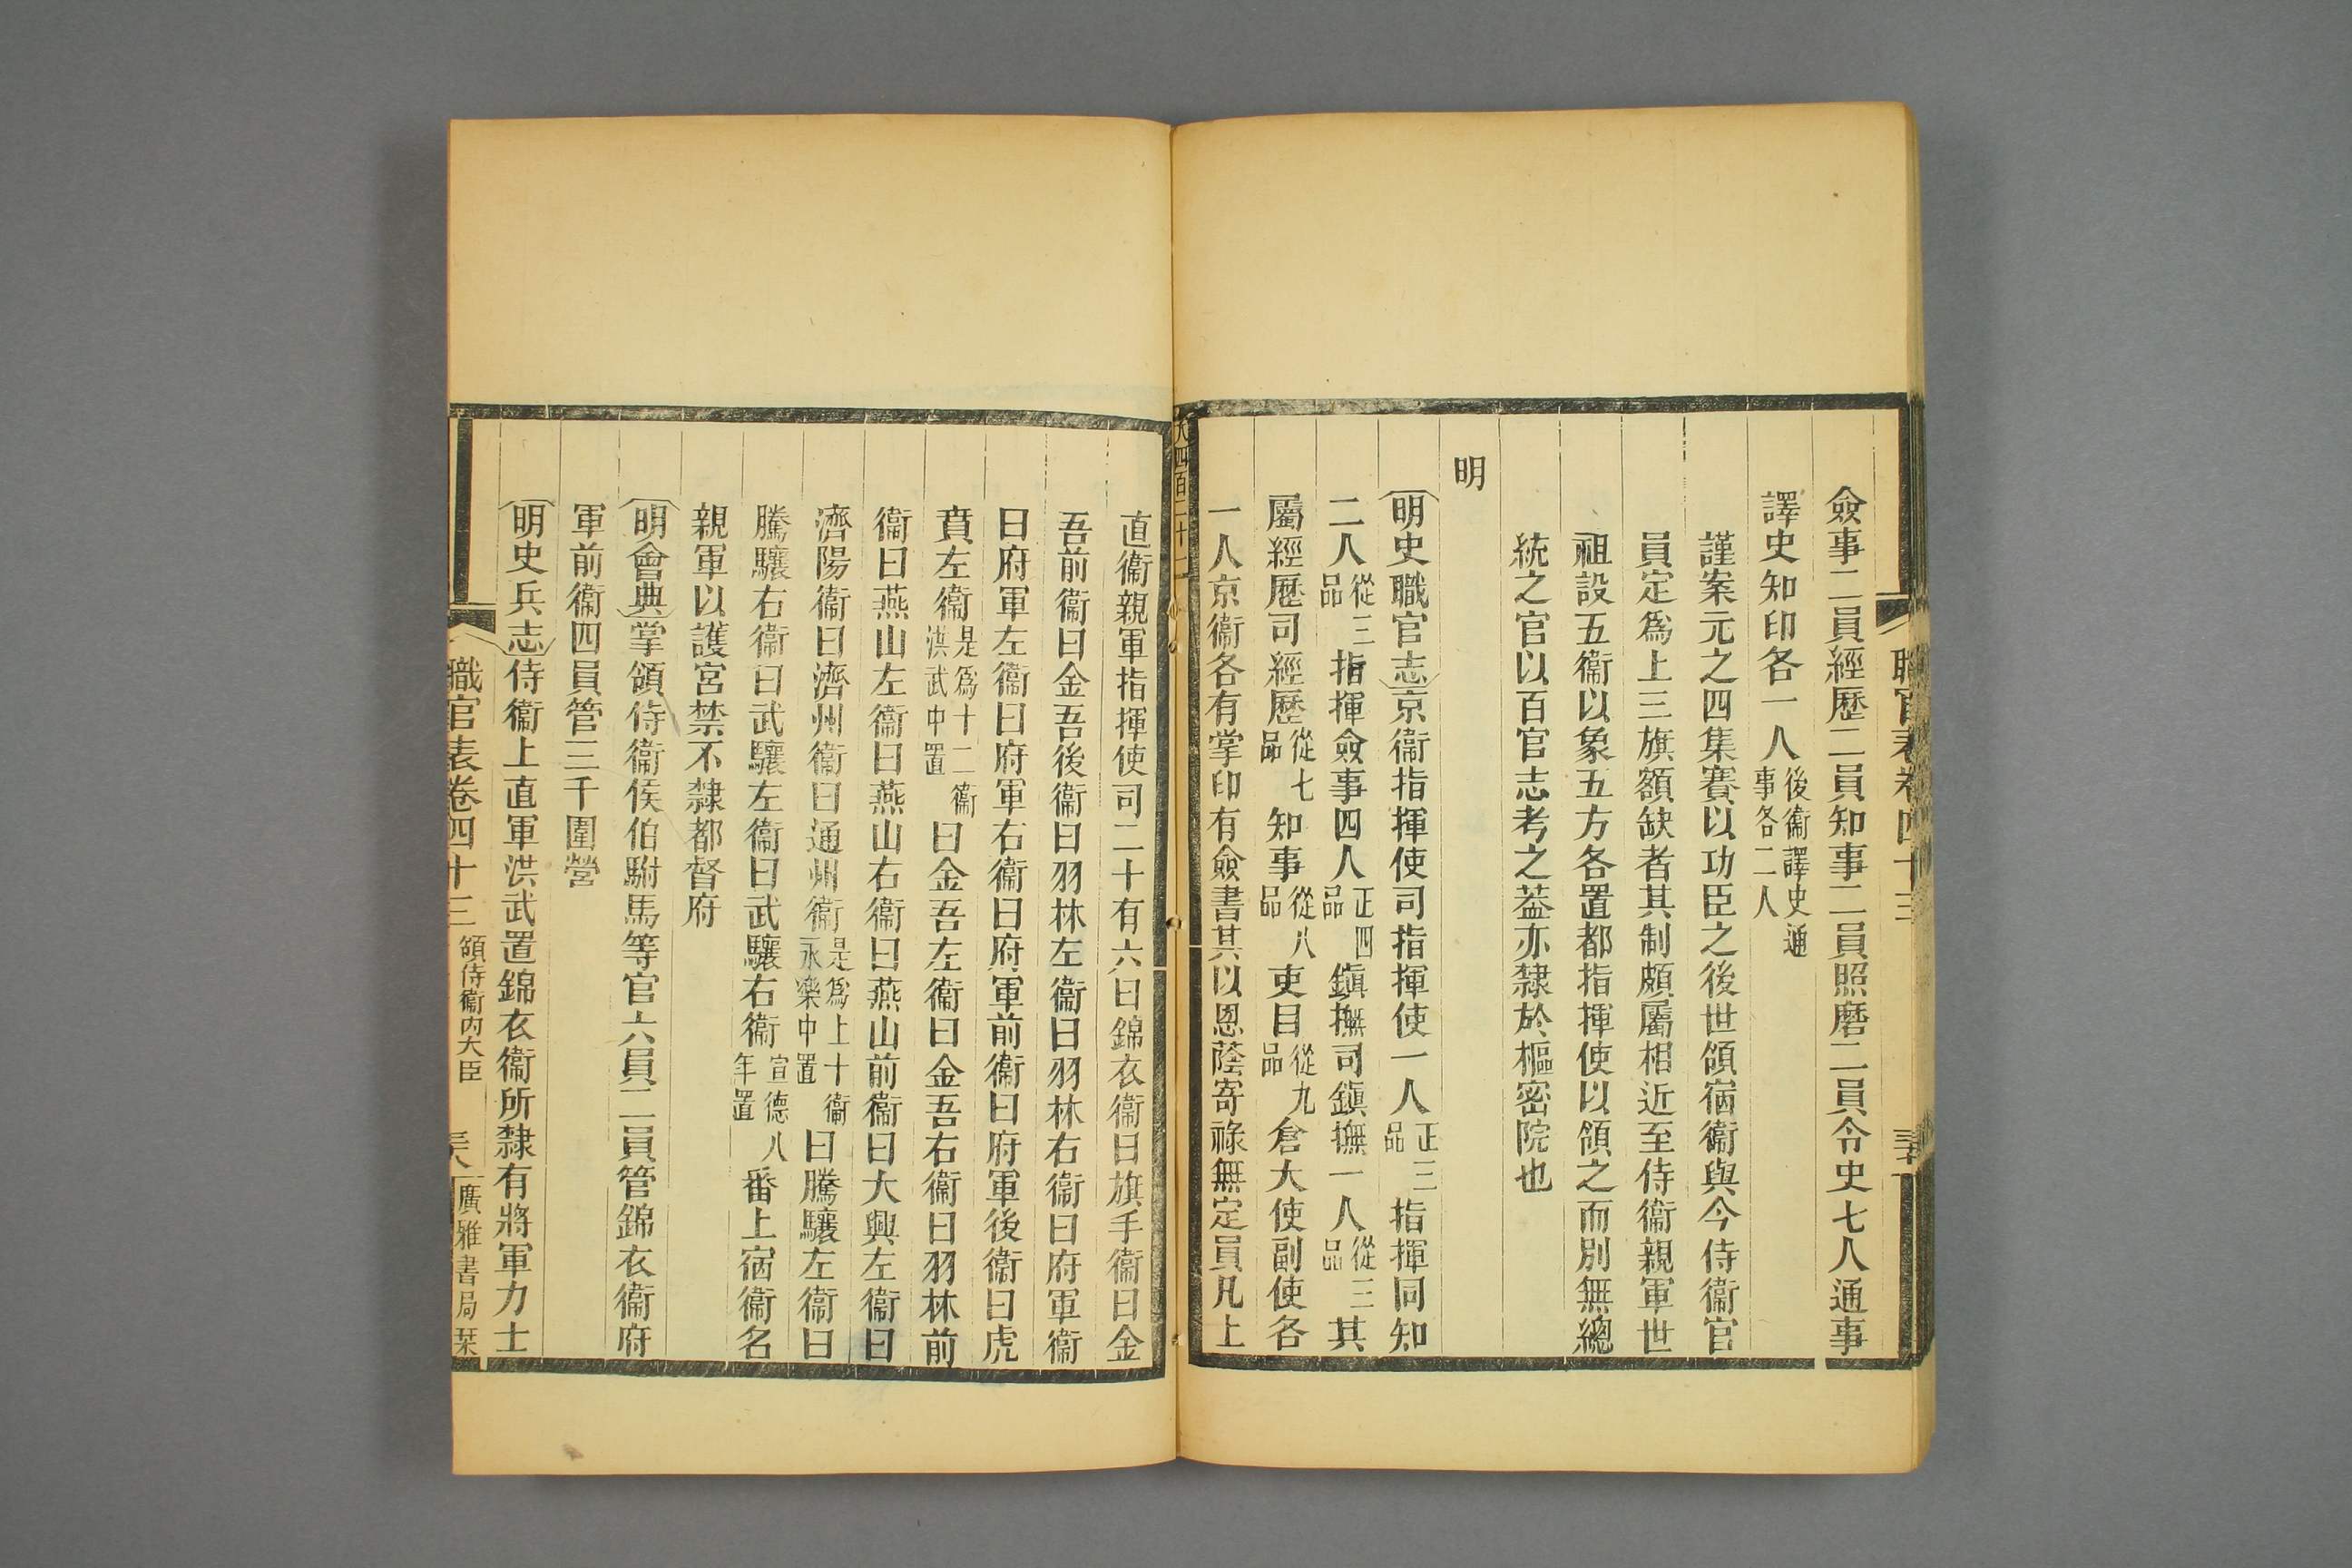 職官表卷四十三
僉事二員經歷二員知事二員照磨二員令史七人通事
譯史知印各一人後衞譯史通事各二人
謹案元之四集賽以功臣之後世領宿衞與今侍衞官
員定爲上三旗額缺者其制頗屬相近至侍衞親軍世
祖設五衞以象五方各置都指揮使以領之而別無總
統之官以百官志考之葢亦隸於樞密院也
明
明史職官志京衞指揮使司指揮使一人正三品指揮同知
二人從三品指揮僉事四人正四品鎭撫司鎭撫二人從五品其
屬經歷司經歷從七品知事從八品吏目從九品倉大使副使各
一人京衞各有掌印有僉書其以恩蔭寄祿無定員凡上
大四百二十一
直衞親軍指揮使司二十有六曰錦衣衞曰旗手衞曰金
吾前衞曰金吾後衞曰羽林左衞曰羽林右衞曰府軍衞
曰府軍左衞曰府軍右衞曰府軍前衞曰府軍後衞曰虎
賁左衞是爲十二衞洪武中置曰金吾左衞曰金吾右衞曰羽林前
衞曰燕山左衞曰燕山右衞曰燕山前衞曰大興左衞曰
濟陽衞曰濟州衞曰通州衞是爲上十衞永樂中置曰騰驤左衞曰
騰驤右衞曰武驤左衞曰武驤右衞宣德八年置番上宿衞名
親軍以護宮禁不隸都督府
明會典掌領侍衞侯伯駙馬等官六員二員管錦衣衞府
軍前衞四員管三千圍營
明史兵志侍衞上直軍洪武置錦衣衞所隸有將軍力士
職官表卷四十三 領侍衞内大臣 廣雅書局栞